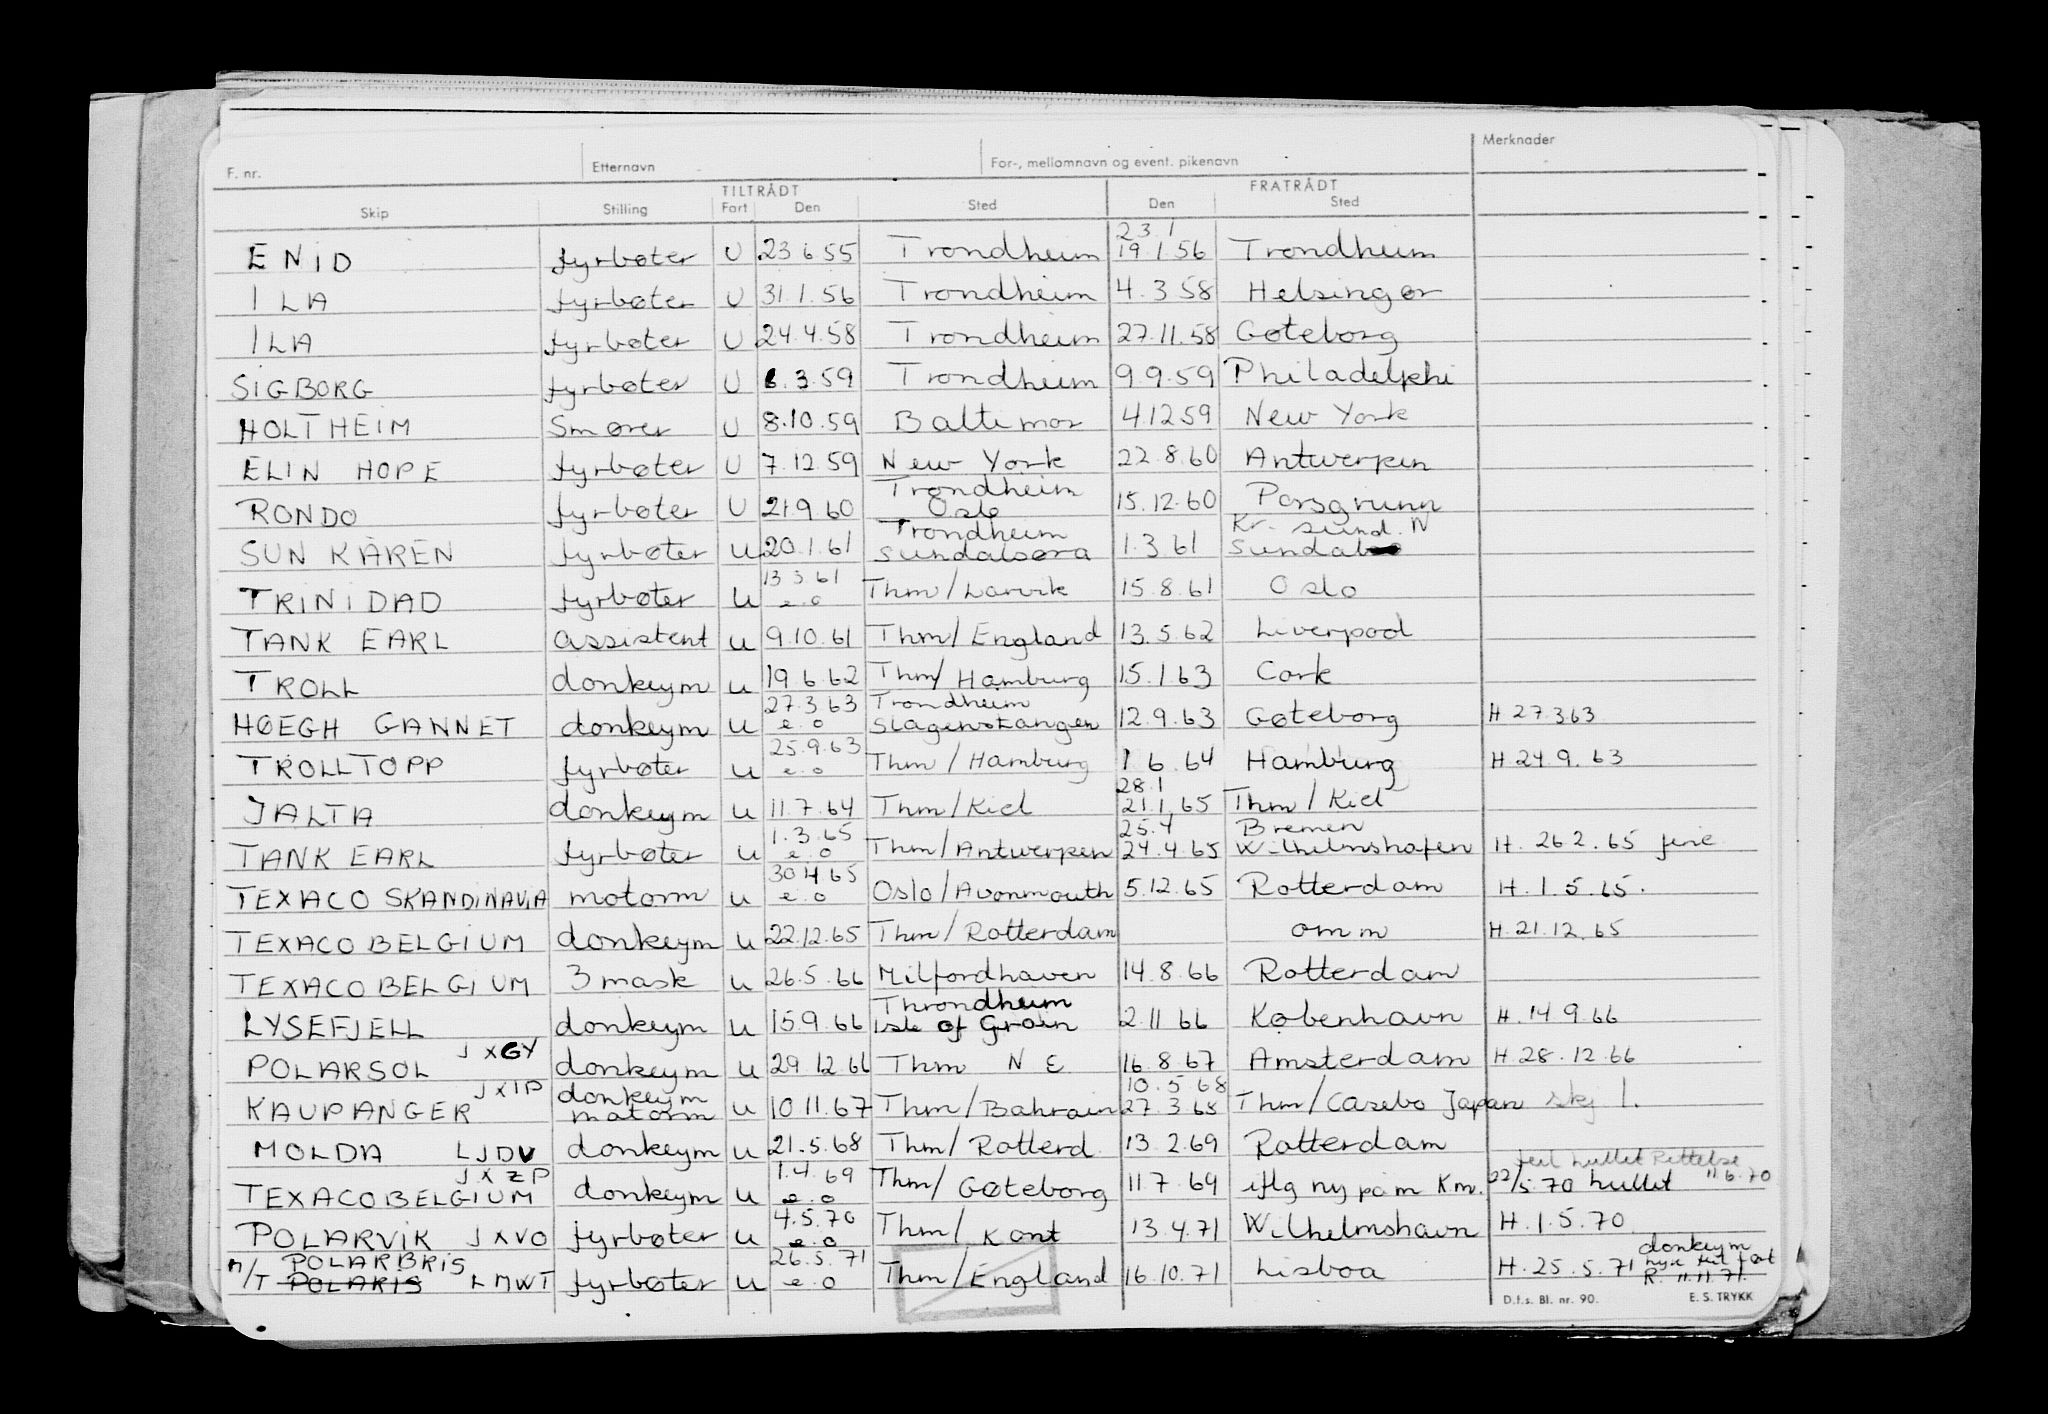 F. nr. Etternavn For-, mellomnavn og event. pikenavn Merknader
TILTRÅDT FRATRÅDT
Skip Stilling Fart Den Sted Den Sted
23.1
ENID fyrbøter U 23 6 55 Trondheim 19.1.56 Trondheim
ILA fyrbøter U 31.1.56 Trondheim 4.3 58 Helsingør
ILA fyrbøter U 24.4.58 Trondheim 27.11.58 Gøteborg
SIGBORG fyrbøter U 6.3.59 Trondheim 9.9.59 Philadelphi
HOLTHEIM Smører U 8.10.59 Baltimor 4.12 59 New York
ELIN HOPE fyrbøter U 7.12.59 New York 22.8.60 Antwerpen
Trondheim
RONDO fyrbøter U 21 9 60 Oslo 15.12.60 Porsgrunn
Trondheim Kr. sund. N
SUN KÅREN fyrbøter u 20.1.61 Sundalsøra 1.3 61
13 3 61
TRINIDAD fyrbøter u e.o Thm/Larvik 15.8.61 Oslo
TANK EARL assistent u 9.10.61 Thm/England 13.5.62 Liverpool
TROLL donkeym u 19 6 62 Thm/Hamburg 15.1.63 Cork
27.3 63 Trondheim
HØEGH GANNET donkeym u e.o Slagenstangen 12.9.63 Gøteborg H 27.3 63
25.9.63
TROLLTOPP fyrbøter u e.o Thm/Hamburg 1 6.64 Hamburg H 24 9.63
28.1
JALTA donkeym u 11.7.64 Thm/Kiel 21.1.65 Thm/Kiel
1.3.65 25.4 Bremen
TANK EARL fyrbøter u e.o Thm/Antwerpen 24.4.65 Wilhelmshafen H. 26 2.65 ferie
30 4 65
TEXACO SKANDINAVIA motorm u e.o Oslo/Avonmouth 5.12.65 Rotterdam H.1.5.65.
TEXACO BELGIUM donkeym u 22.12.65 Thm/Rotterdam omm H.21.12.65
TEXACO BELGIUM 3 mask u 26.5.66 Milfordhaven 14.8.66 Rotterdam
Throndheim
LYSEFJELL donkeym u 15.9.66 Isle of Grain 2.11 66 København H.14 9.66
JXGY
POLARSOL donkeym u 29 12 66 Thm NE 16.8.67 Amsterdam H.28.12.66
JXIP donkeym 10.5 68
KAUPANGER matorm u 10 11.67 Thm/Bahrain 27.3 68 Thm/Casebo Japan skj 1.
MOLDA LJDV donkeym u 21.5.68 Thm/Rotterd 13 2.69 Rotterdam
JXZP 1.4.69 feil hullet Rettelse
TEXACO BELGIUM donkeym u e.o Thm/Gøteborg 11 7.69 iflg ny pam Km. 22/5.70 hullet 11 6.70
4.5.70
POLARVIK JXVO fyrbøter u e.o Thm/Kant 13.4.71 Wilhelmshavn H.1.5.70
POLARBRIS 26.5.71 donkeym
M/T POLARIS LMWT fyrbøter u e.o Thm/England 16.10.71 Lisboa H.25.5.71
R. 11.11.71.
D.f.s. Bl. nr. 90. E. S. TRYKK